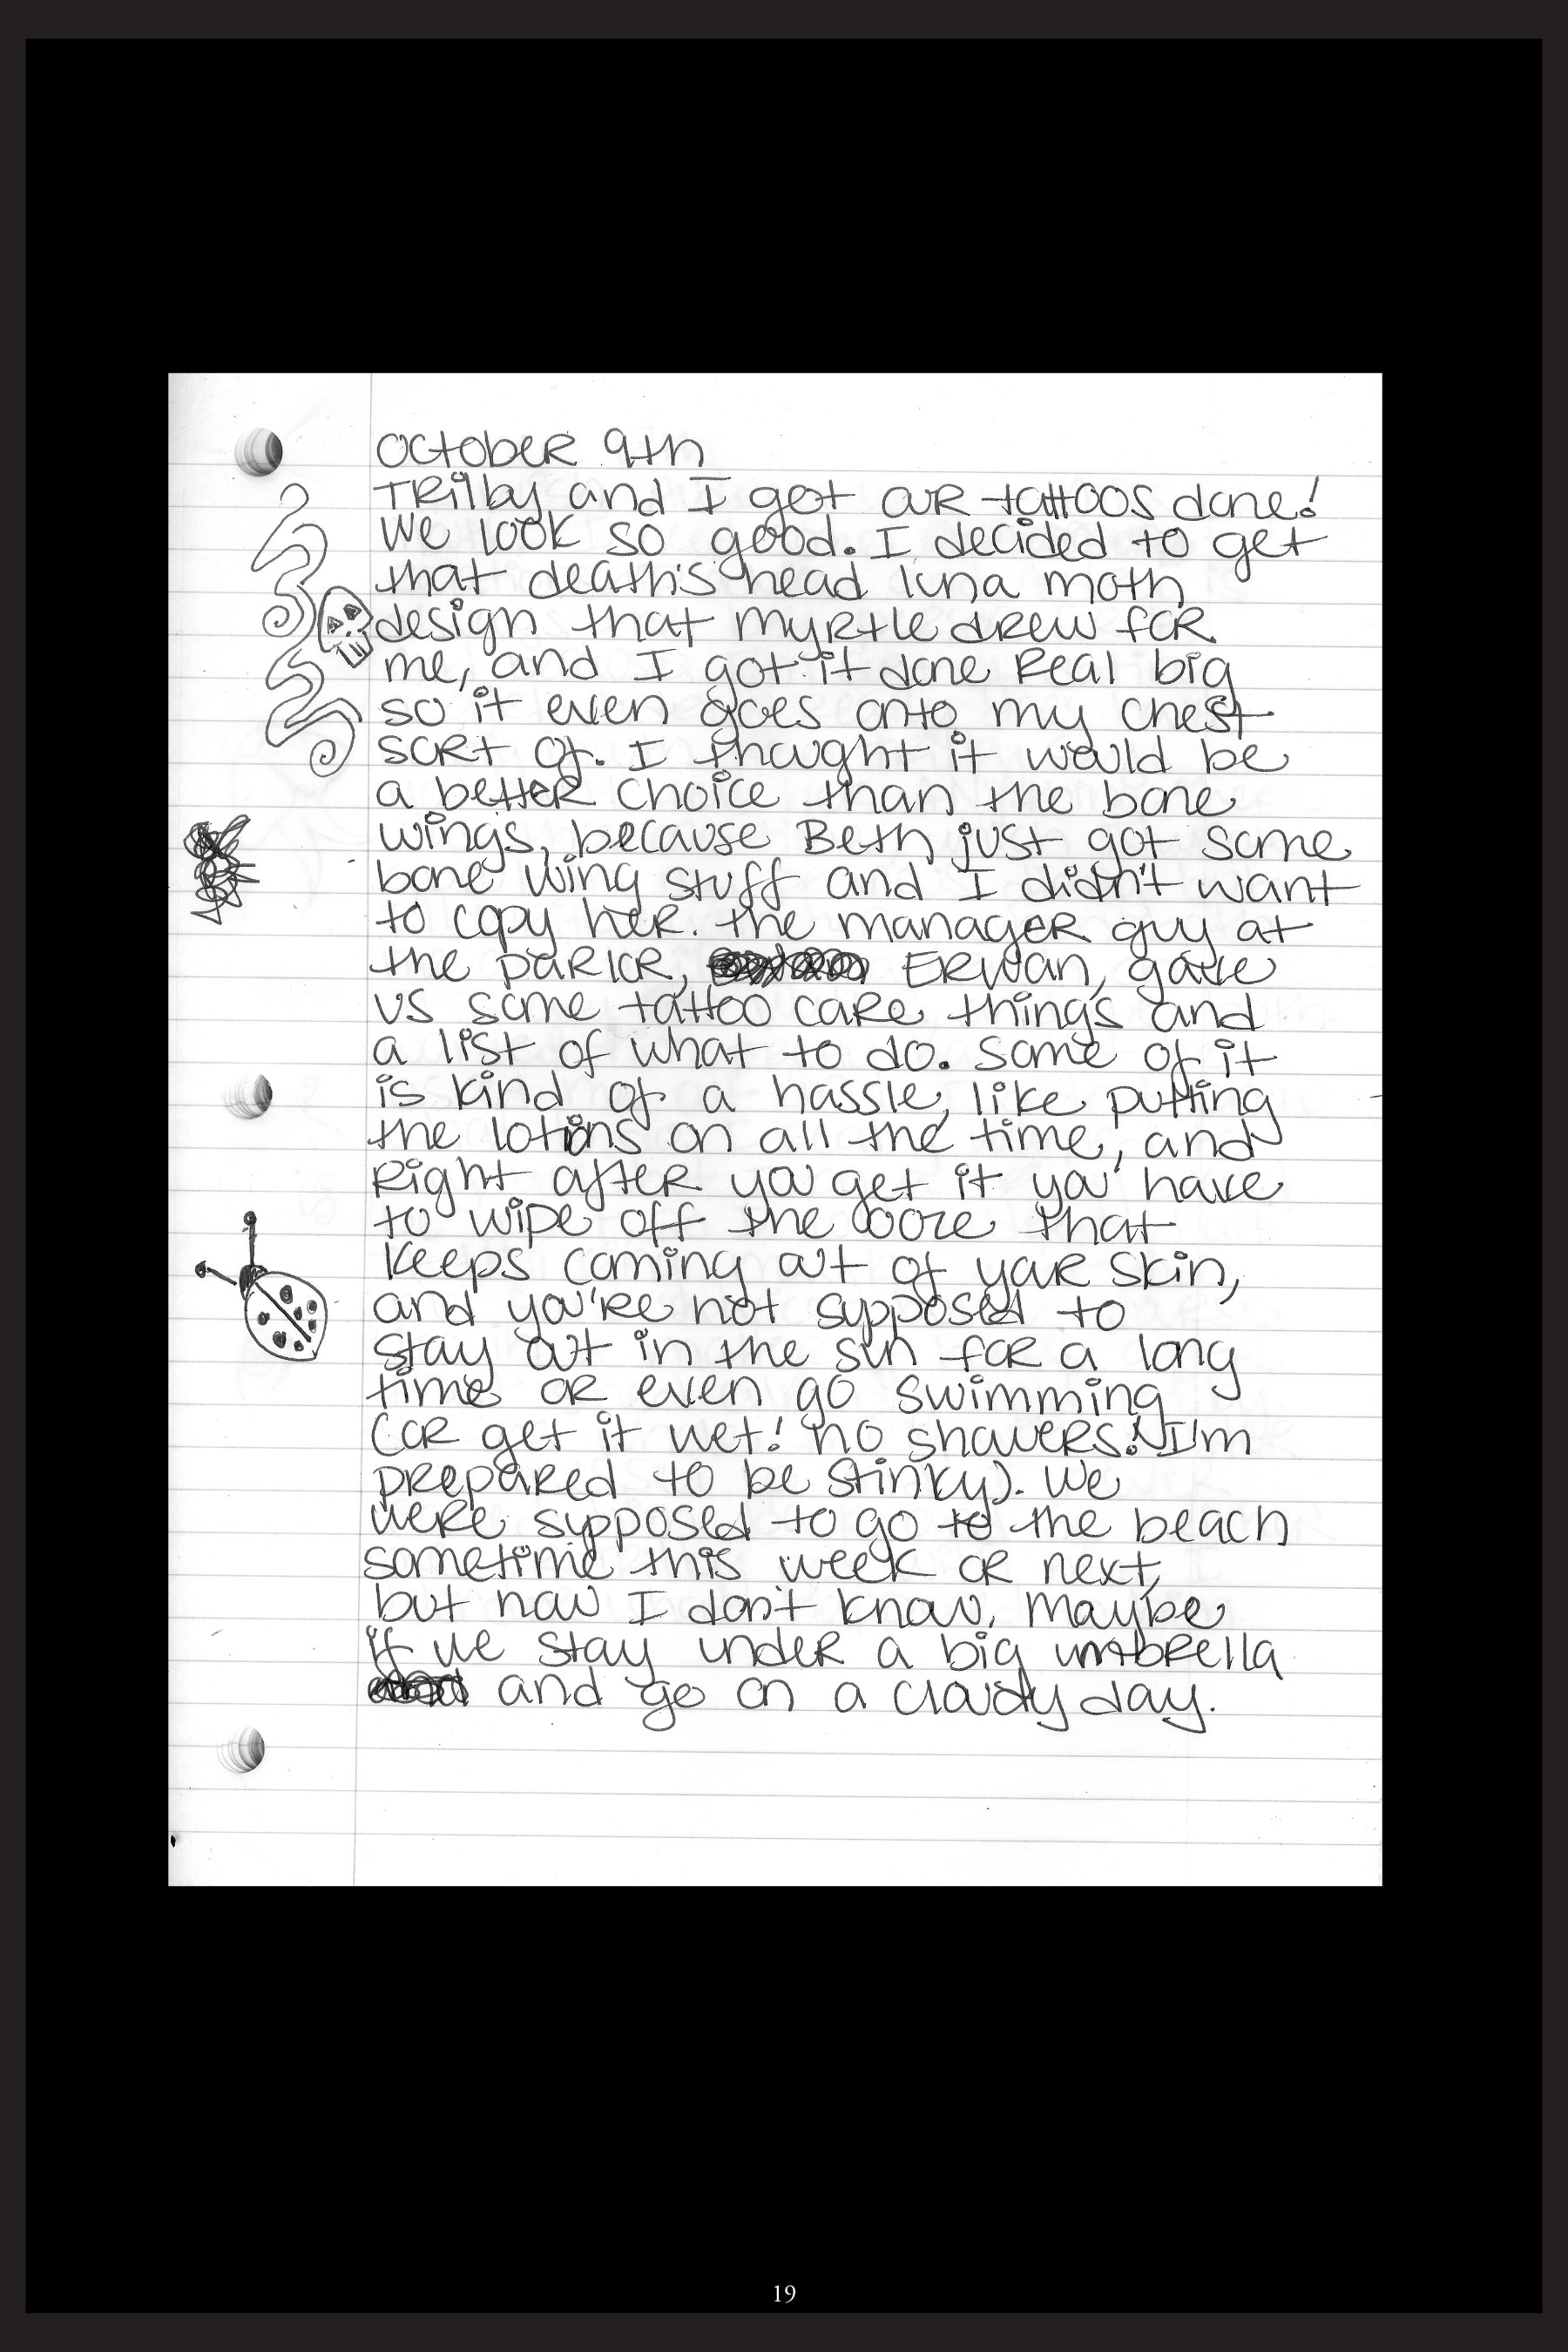 October 9th
Trilby and I got our tattoos done!
We look so good. I decided to get
that death's head luna moth
design that Myrtle drew for
me, and I got it done real big
so it even goes onto my chest
sort of. I thought it would be
a better choice than the bone
wings, because Beth just got some
bone wing stuff and I didn't want
to copy her. The manager guy at
the parlor, Erwan, gave
us some tattoo care things and
a list of what to do. Some of it
is kind of a hassle, like putting
the lotions on all the time, and
right after you get it you have
to wipe off the ooze that
keeps coming out of your skin,
and you're not supposed to
stay out in the sun for a long
time or even go swimming
(or get it wet! No showers! I'm
prepared to be stinky). We
were supposed to go to the beach
sometime this week or next,
but now I don't know. Maybe
if we stay under a big umbrella
and go on a cloudy day.
19